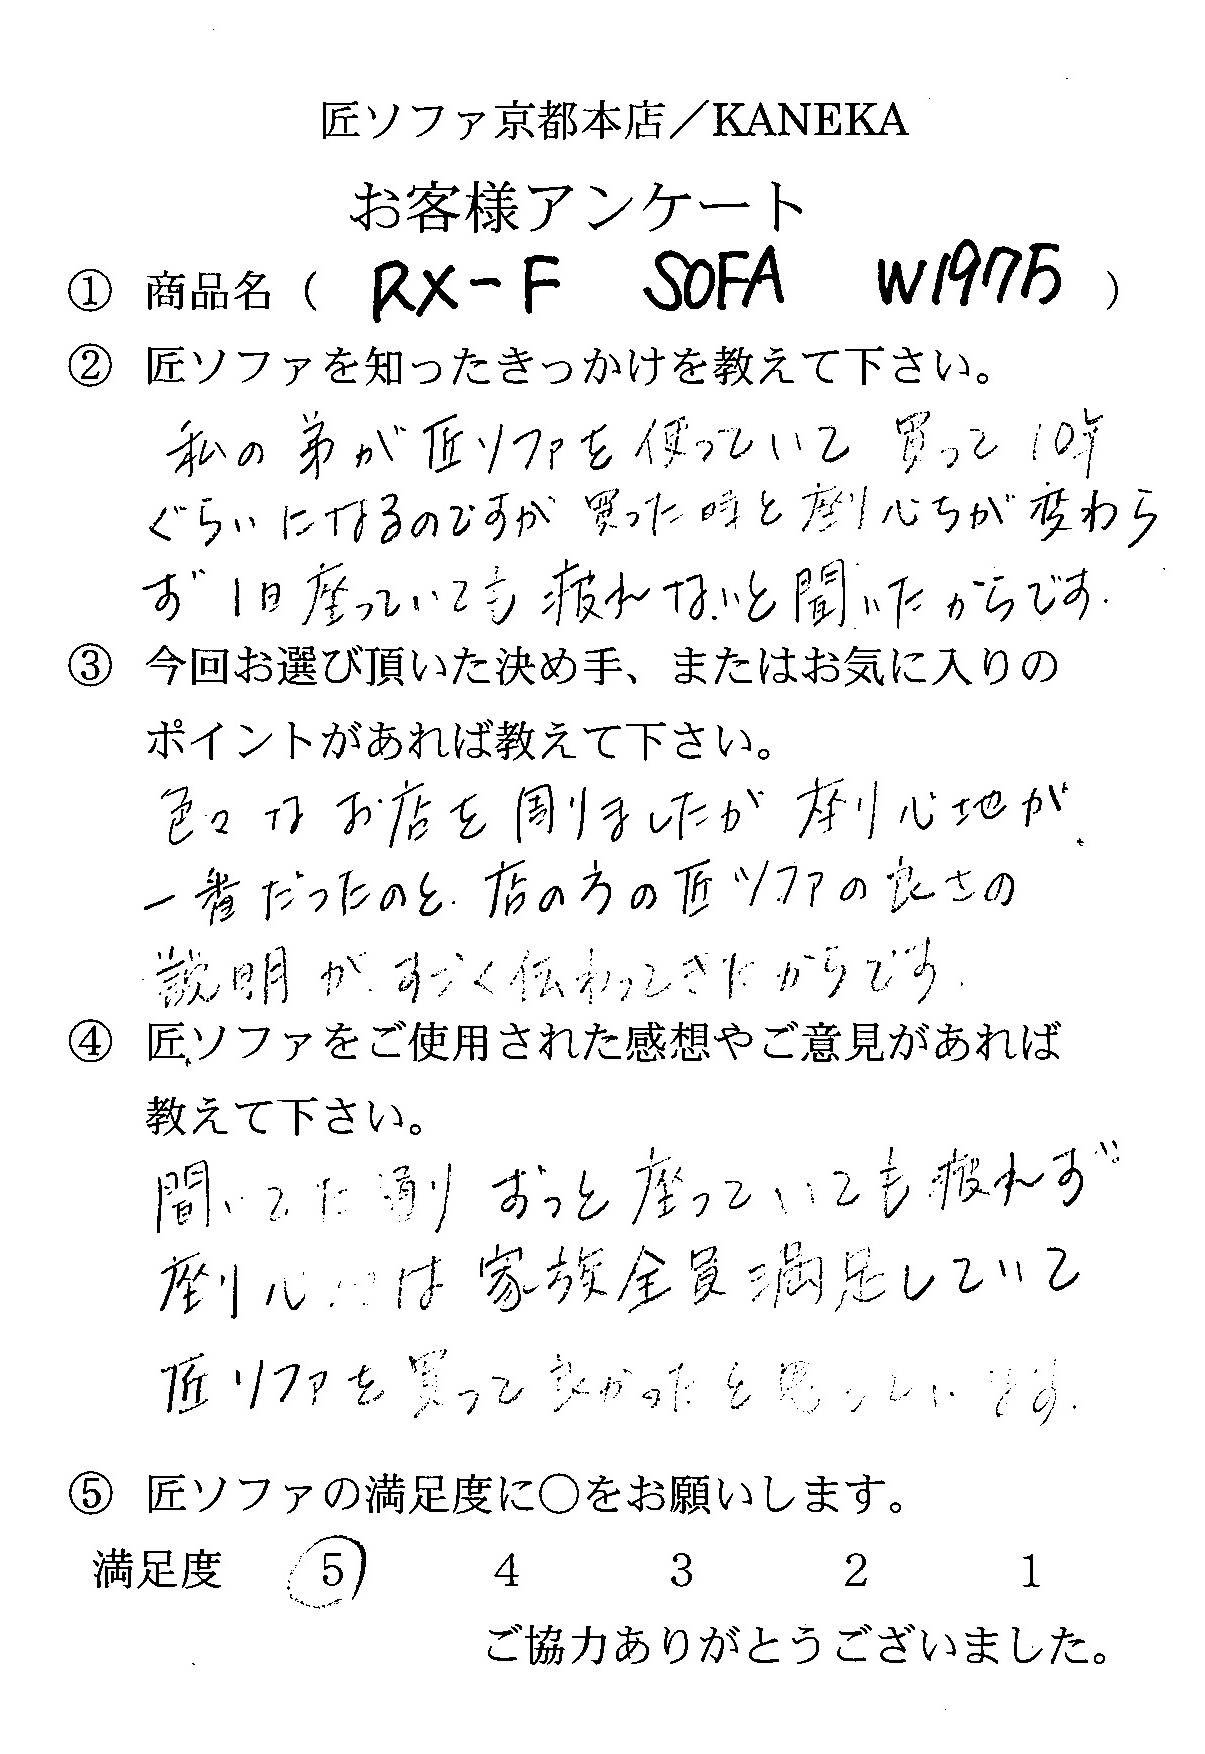 匠ソファ京都本店／KANEKA
お客様アンケート
① 商品名（ RX-F SOFA W1975 ）
② 匠ソファを知ったきっかけを教えて下さい。
私の弟が匠ソファを使っていて 買って10年
ぐらいになるのですが 買った時と座り心ちが変わら
ず 1日座っていても疲れないと聞いたからです.
③ 今回お選び頂いた決め手、またはお気に入りの
ポイントがあれば教えて下さい。
色々なお店を周りましたが 座り心地が
一番だったのと、店の方の匠ソファの良さの
説明が、すごく伝わってきたからです.
④ 匠ソファをご使用された感想やご意見があれば
教えて下さい。
聞いてた通り ずっと座っていても疲れず
座り心は家族全員満足していて
匠ソファを買って良かったと思っています.
⑤ 匠ソファの満足度に○をお願いします。
満足度 5 4 3 2 1
ご協力ありがとうございました。